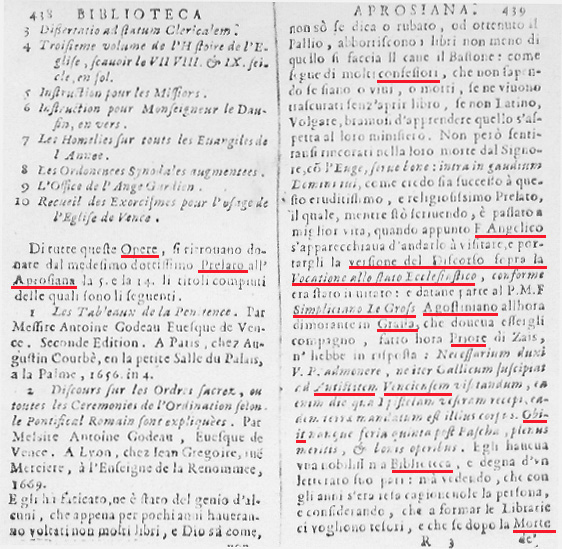 438 BIBLIOTECA
3 Dissertatio ad statum Clericalem.
4 Troisieme volume de l'Histoire de l'E-
glise, scauoir le VII VIII. & IX. sei-
cle, en fol.
5 Instruction pour les Missiors.
6 Instruction pour Monseigneur le Dau-
fin, en vers.
7 Les Homelies sur toutes les Euangiles de
l'Annee.
8 Les Ordonences Synodales augmentees.
9 L'Office de l'Ange Gardien.
10 Recueil des Exorcismes pour l'usage de
l'Eglise de Vence.
Di tutte queste Opere, si ritrouano do-
nate dal medesimo dottissimo Prelato all'
Aprosiana la 5. e la 14. li titoli compiuti
delle quali sono li seguenti.
1 Les Tableaux de la Penitence. Par
Messire Antoine Godeau Euesque de Ven-
ce. Seconde Edition. A Paris, chez Au-
gustin Courbè, en la petite Salle du Palais,
a la Palme, 1656. in 4.
2 Discours sur les Ordres sacrez, ou
toutes les Ceremonies de l'Ordination selon
le Pontifical Romain sont expliquées. Par
Messire Antoine Godeau, Euesque de
Vence. A Lyon, chez Iean Gregoire, rue
Merciere, à l'Enseigne de la Renommee,
1669.
Egli hà faticato, ne è stato del genio d'al-
cuni, che appena per pochi anni haueran-
no voltati non molti libri, e Dio sà come,
APROSIANA. 439
non sò se dica o rubato, od ottenuto il
Pallio, abborriscono i libri non meno di
quello si faccia il cane il Bastone: come
segue di molti confessori, che non sapen-
do se siano o viui, o morti, se ne viuono
trascurati senz'aprir libro, se non Latino,
Volgare, bramosi d'apprendere quello s'as-
petta al loro ministero. Non però senti-
ransi rincorati nella loro morte dal Signo-
re, cõ l'Euge, serue bone: intra in gaudium
Domini tui, come credo sia successo à que-
sto eruditissimo, e religiosissimo Prelato,
il quale, mentre stò scriuendo, è passato a
miglior vita, quando appunto F. Angelico
s'apparecchiaua d'andarlo à visitare, e por-
targli la versione del Discorso sopra la
Vocatione allo stato Ecclesiastico, conforme
era stato inuitato: e datane parte al P. M. F.
Simpliciano Le Gros Agostiniano allhora
dimorante in Grassa, che doueua essergli
compagno, fatto hora Priore di Zais,
n'hebbe in risposta: Necessarium duxi
V. P. admonere, ne iter Gallicum suscipiat
ad Antistitem Venciensem visitandum, ea
enim die qua Epistolam vestram recepi, ea-
dem terra mandatum est illius corpus. Obi-
it nonque feria quinta post Pascha, plenus
meritis, & bonis operibus. Egli haueua
vna nobilissima Biblioteca, e degna d'vn
letterato suo pari: mà vedendo, che con
gli anni s'era resa cagioneuole la persona,
e considerando, che a formar le Librarie
ci vogliono tesori, e che se dopo la Morte
R 3 de'